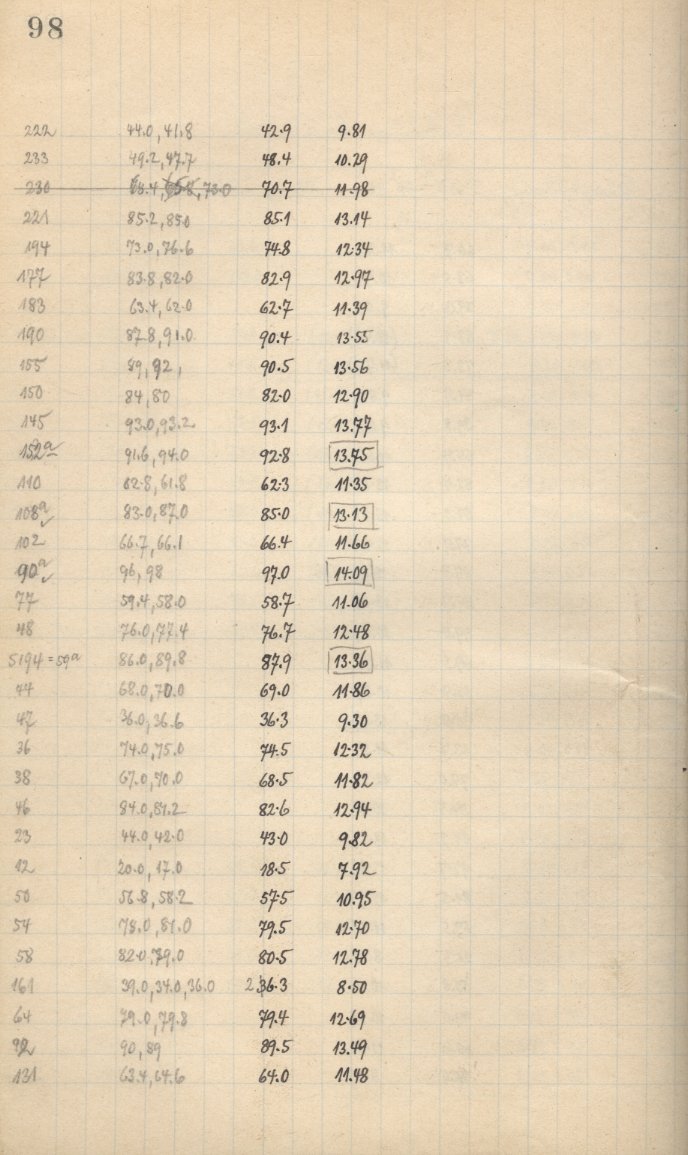 98
222 44.0, 41.8 42.9 9.81
233 49.2, 47.7 48.4 10.29
230 68.4, 73.0 70.7 11.98
221 85.2, 85.0 85.1 13.14
194 73.0, 76.6 74.8 12.34
177 83.8, 82.0 82.9 12.97
183 63.4, 62.0 62.7 11.39
190 87.8, 91.0 90.4 13.55
155 89, 92, 90.5 13.56
150 84, 80 82.0 12.90
145 93.0, 93.2 93.1 13.77
152a 91.6, 94.0 92.8 13.75
110 62.8, 61.8 62.3 11.35
108a 83.0, 87.0 85.0 13.13
102 66.7, 66.1 66.4 11.66
90a 96, 98 97.0 14.09
77 59.4, 58.0 58.7 11.06
48 76.0, 77.4 76.7 12.48
5194 = 59a 86.0, 89.8 87.9 13.36
44 68.0, 70.0 69.0 11.86
47 36.0, 36.6 36.3 9.30
36 74.0, 75.0 74.5 12.32
38 67.0, 70.0 68.5 11.82
46 84.0, 81.2 82.6 12.94
23 44.0, 42.0 43.0 9.82
12 20.0, 17.0 18.5 7.92
50 56.8, 58.2 57.5 10.95
54 78.0, 81.0 79.5 12.70
58 82.0, 79.0 80.5 12.78
161 39.0, 34.0, 36.0 36.3 8.50
64 79.0, 79.8 79.4 12.69
92 90, 89 89.5 13.49
131 63.4, 64.6 64.0 11.48